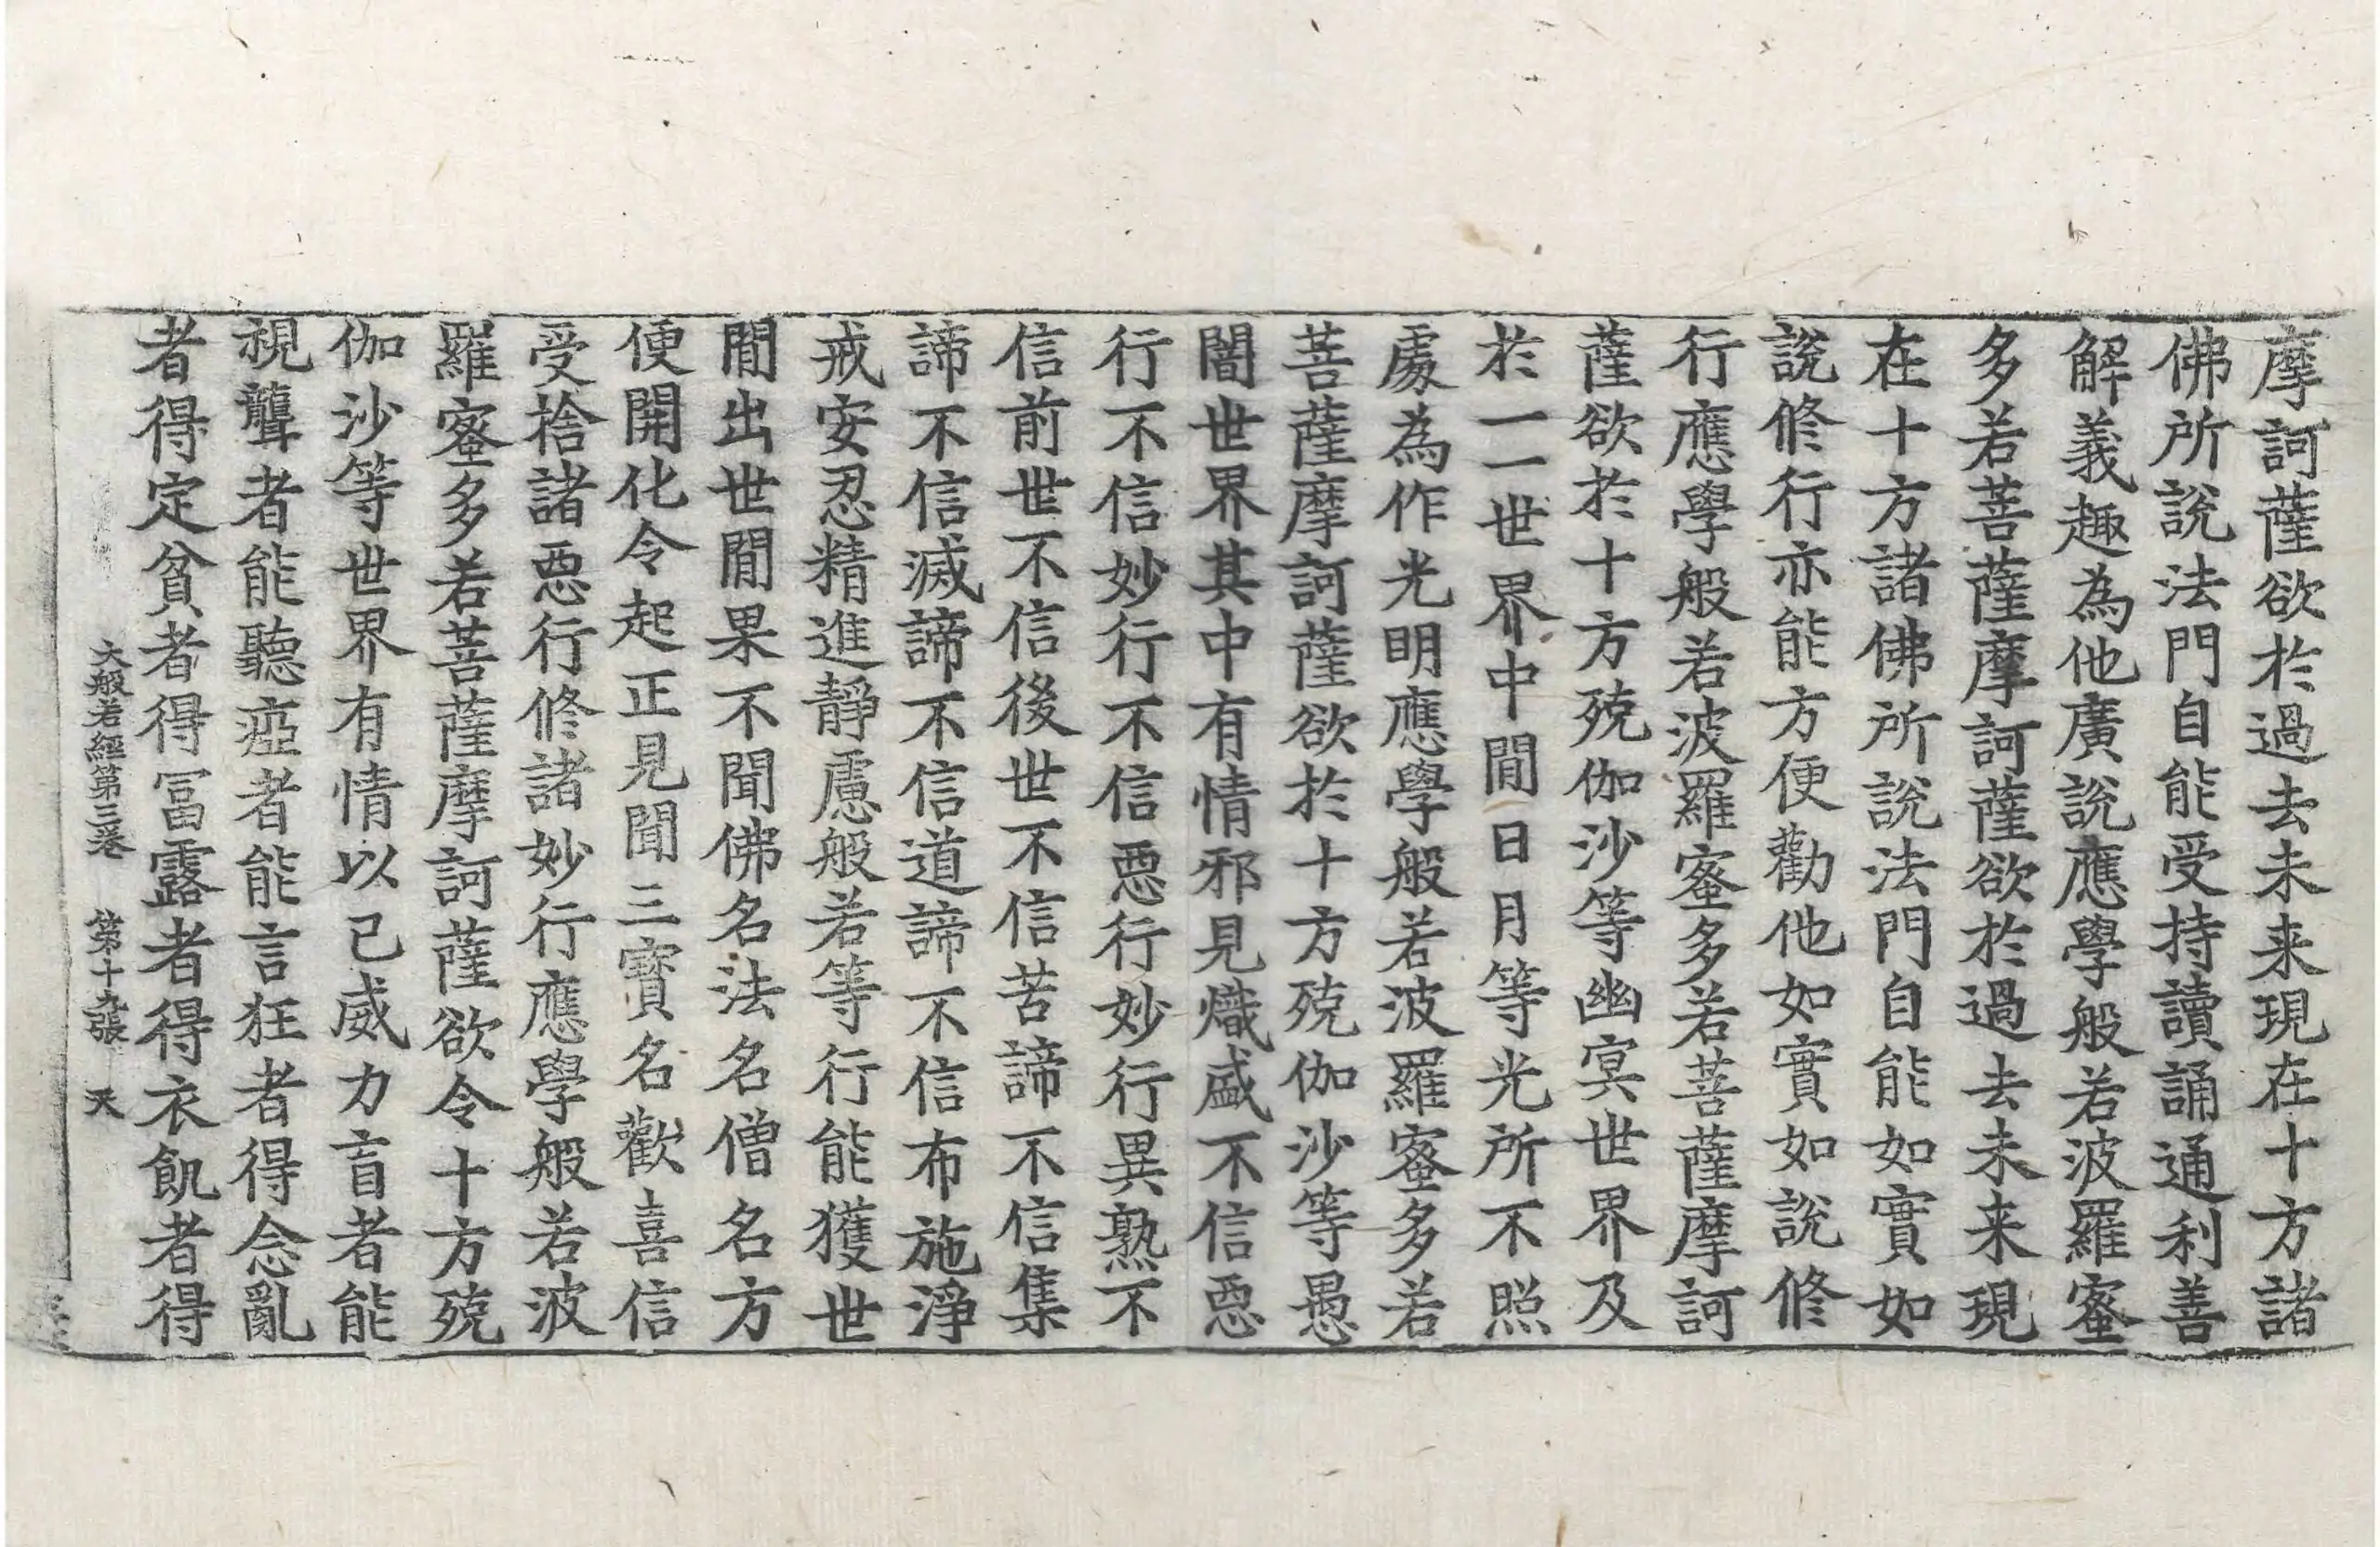 摩訶薩欲於過去未来現在十方諸
佛所說法門自能受持讀誦通利善
解義趣為他廣說應學般若波羅蜜
多若菩薩摩訶薩欲於過去未来現
在十方諸佛所說法門自能如實如
說修行亦能方便勸他如實如說修
行應學般若波羅蜜多若菩薩摩訶
薩欲於十方殑伽沙等幽㝠世界及
於一一世界中間日月等光所不照
處為作光明應學般若波羅蜜多若
菩薩摩訶薩欲於十方殑伽沙等愚
闇世界其中有情邪見熾盛不信惡
行不信妙行不信惡行妙行異熟不
信前世不信後世不信苦諦不信集
諦不信滅諦不信道諦不信布施淨
戒安忍精進靜慮般若等行能獲世
間出世間果不聞佛名法名僧名方
便開化令起正見聞三寶名歡喜信
受捨諸惡行修諸妙行應學般若波
羅蜜多若菩薩摩訶薩欲令十方殑
伽沙等世界有情以己威力盲者能
視聾者能聽瘂者能言狂者得念亂
者得定貧者得冨露者得衣飢者得
大般若經第三卷 第十九張 天